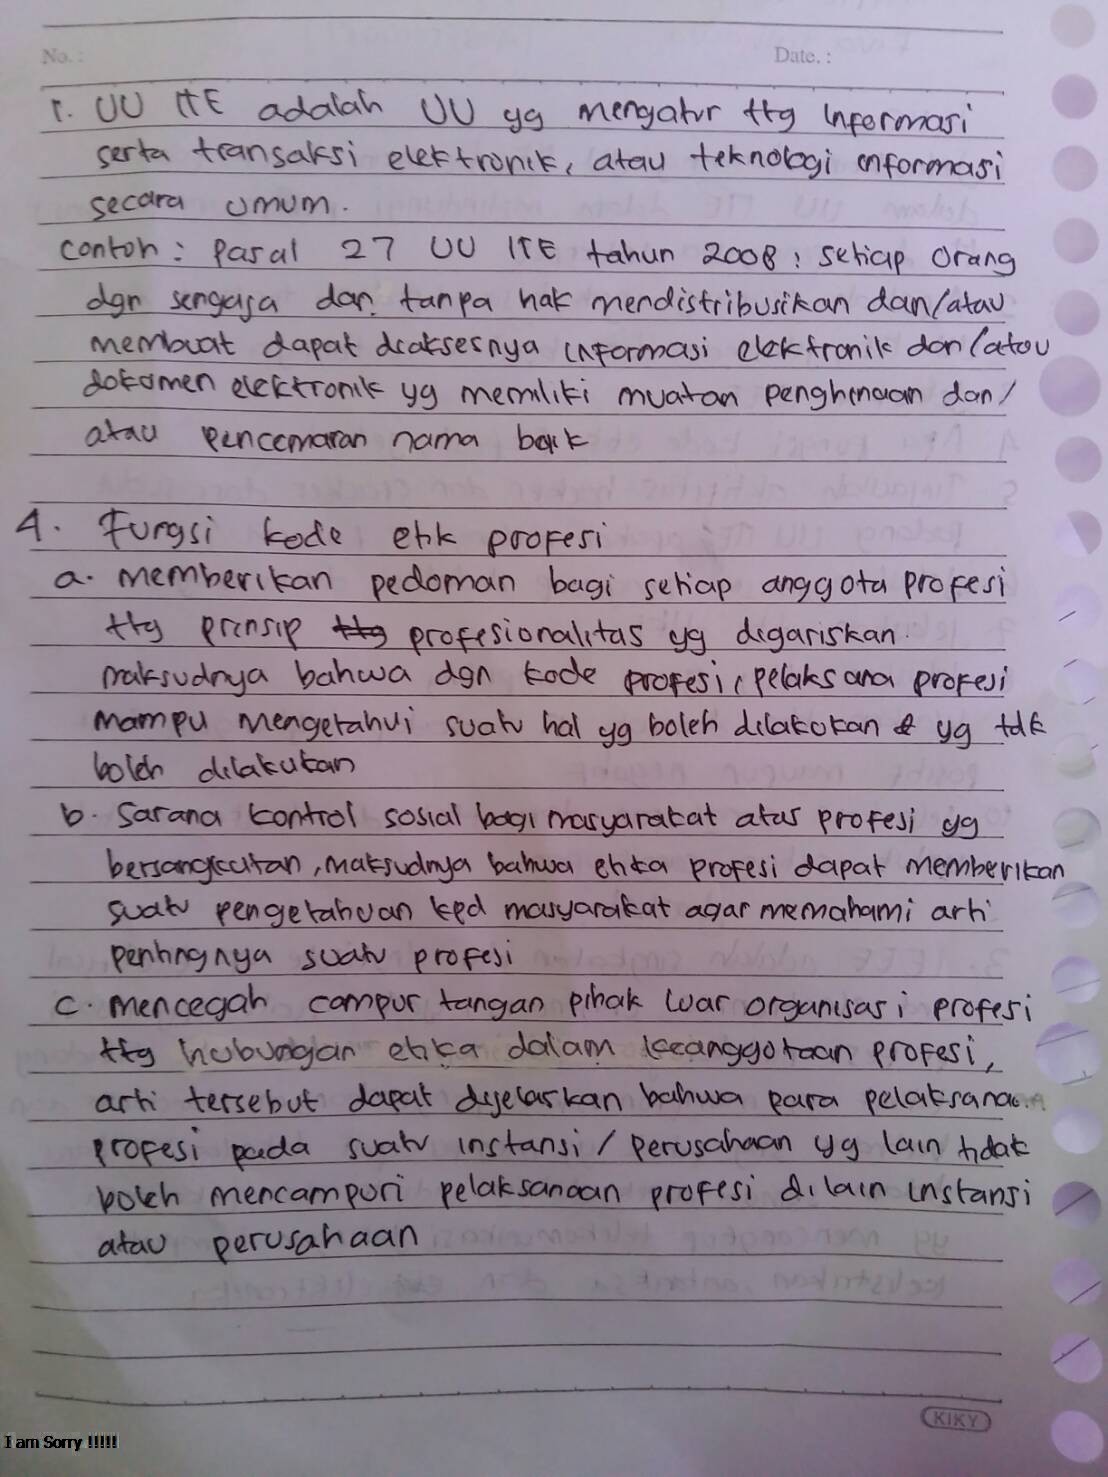 No. :
Date. :
1. UU ITE adalah UU yg mengatur ttg Informasi
serta transaksi elektronik, atau teknologi informasi
secara umum.
Contoh : Pasal 27 UU ITE tahun 2008 : setiap orang
dgn sengaja dan tanpa hak mendistribusikan dan/atau
membuat dapat diaksesnya informasi elektronik dan/atau
dokumen elektronik yg memiliki muatan penghinaan dan/
atau pencemaran nama baik
4. Fungsi kode etik profesi
a. memberikan pedoman bagi setiap anggota profesi
ttg prinsip ttg profesionalitas yg digariskan.
maksudnya bahwa dgn kode profesi, pelaksana profesi
mampu mengetahui suatu hal yg boleh dilakukan & yg tdk
boleh dilakukan
b. Sarana kontrol sosial bagi masyarakat atas profesi yg
bersangkutan, maksudnya bahwa etika profesi dapat memberikan
suatu pengetahuan kpd masyarakat agar memahami arti
pentingnya suatu profesi
c. mencegah campur tangan pihak luar organisasi profesi
ttg hubungan etika dalam keanggotaan profesi,
arti tersebut dapat dijelaskan bahwa para pelaksana
profesi pada suatu instansi / perusahaan yg lain tidak
boleh mencampuri pelaksanaan profesi di lain instansi
atau perusahaan
KIKY
I am Sorry !!!!!